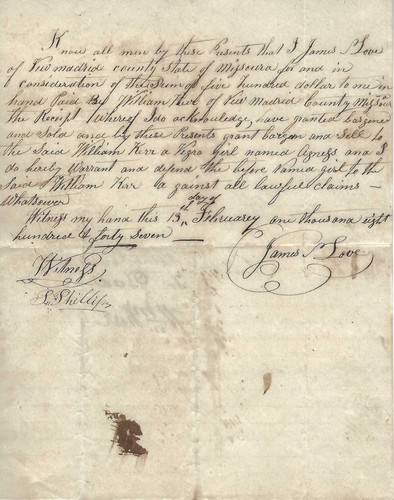 Know all men by these Presents that I James P Love
of New madrid county State of Missoura for and in
consideration of the Sum of five hundred dollar to me in
hand Paid By William Kerr of New Madrid County Missour
the Receipt Whereof I do acknowledge, have granted bargone
and Sold and by these Presents grant bargan and Sell to
the Said William Kerr a Negro Girl named Agness and I
do hereby Warrant and defend the before Named girl to the
Said William Kerr against all lawful claims —
Whatsoever
day of
Witness my hand this 13th Februarey one thousand eight
hundred & forty Seven —
James P Love
Witness
Phillips